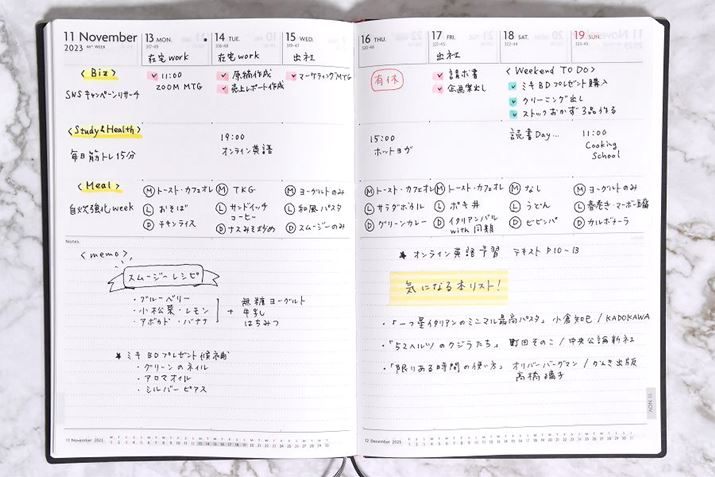 11 November
2023 46th WEEK
13 MON.
317-48
在宅work
14 TUE.
318-47
在宅work
15 WED.
319-46
出社
〈Biz〉
SNSキャンペーンリサーチ
11:00
ZOOM MTG
原稿作成
売上レポート作成
マーケティングMTG
〈Study&Health〉
毎日筋トレ15分
19:00
オンライン英語
〈Meal〉
自炊強化week
Ⓜ トースト・カフェオレ
Ⓛ おそば
Ⓓ チキンライス
Ⓜ TKG
Ⓛ サンドイッチ
コーヒー
Ⓓ ナスみそ炒め
Ⓜ ヨーグルトのみ
Ⓛ 和風パスタ
Ⓓ スムージーのみ
Notes
〈memo〉
スムージーレシピ
・ブルーベリー
・小松菜・レモン
・アボカド・バナナ
+
無糖ヨーグルト
牛乳
はちみつ
★ ミキBDプレゼント候補
・グリーンのネイル
・アロマオイル
・シルバーピアス
11 November 2023
16 THU.
有休
17 FRI.
出社
請求書
企画案出し
18 SAT.
19 SUN.
〈Weekend TO DO〉
ミキBDプレゼント購入
クリーニング出し
ストックおかず3品作る
15:00
ホットヨガ
読書Day...
11:00
Cooking
School
Ⓜ トースト・カフェオレ
Ⓛ サラダボウル
Ⓓ グリーンカレー
Ⓜ トースト・カフェオレ
Ⓛ ポキ丼
Ⓓ イタリアンバル
with 同期
Ⓜ なし
Ⓛ うどん
Ⓓ ビビンバ
Ⓜ ヨーグルトのみ
Ⓛ 春巻き・マーボー豆腐
Ⓓ カルボナーラ
★ オンライン英語予習 テキスト P10〜13
気になる本リスト!
・「一ツ星イタリアンのミニマル最高パスタ」 小倉知巳 / KADOKAWA
・「52ヘルツのクジラたち」 町田そのこ / 中央公論新社
・「限りある時間の使い方」 オリバー・バークマン / かんき出版
高橋璃子
11 NOV
12 December 2023